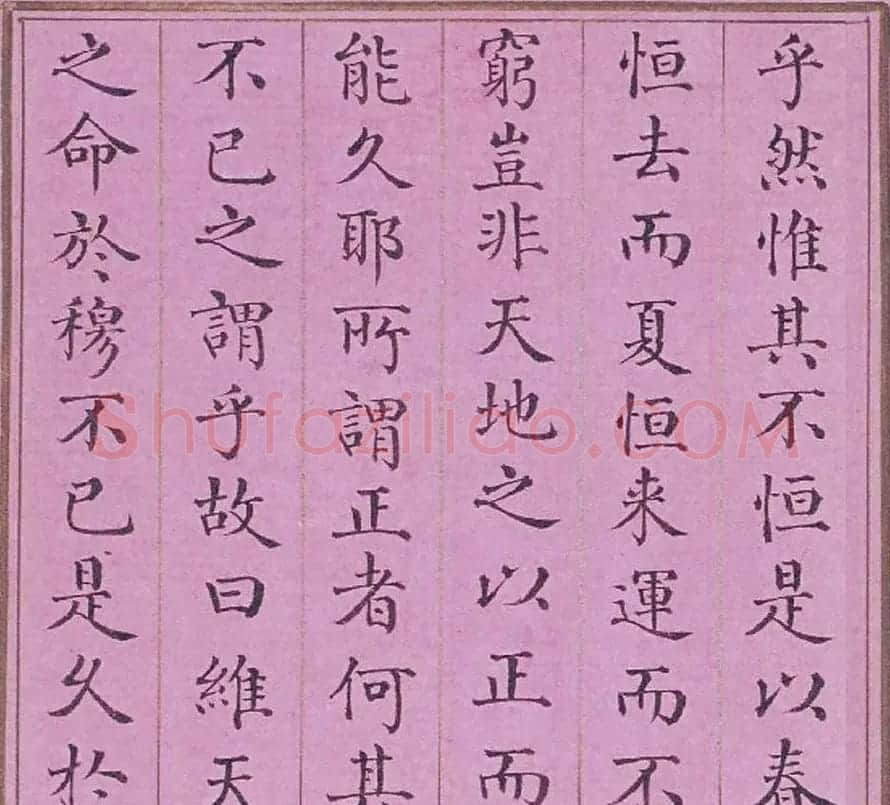 乎然惟其不恒是以春
恒去而夏恒来運而不
窮豈非天地之以正而
能久耶所謂正者何其
不已之謂乎故曰維天
之命於穆不已是久於
Shufaziliao.COM